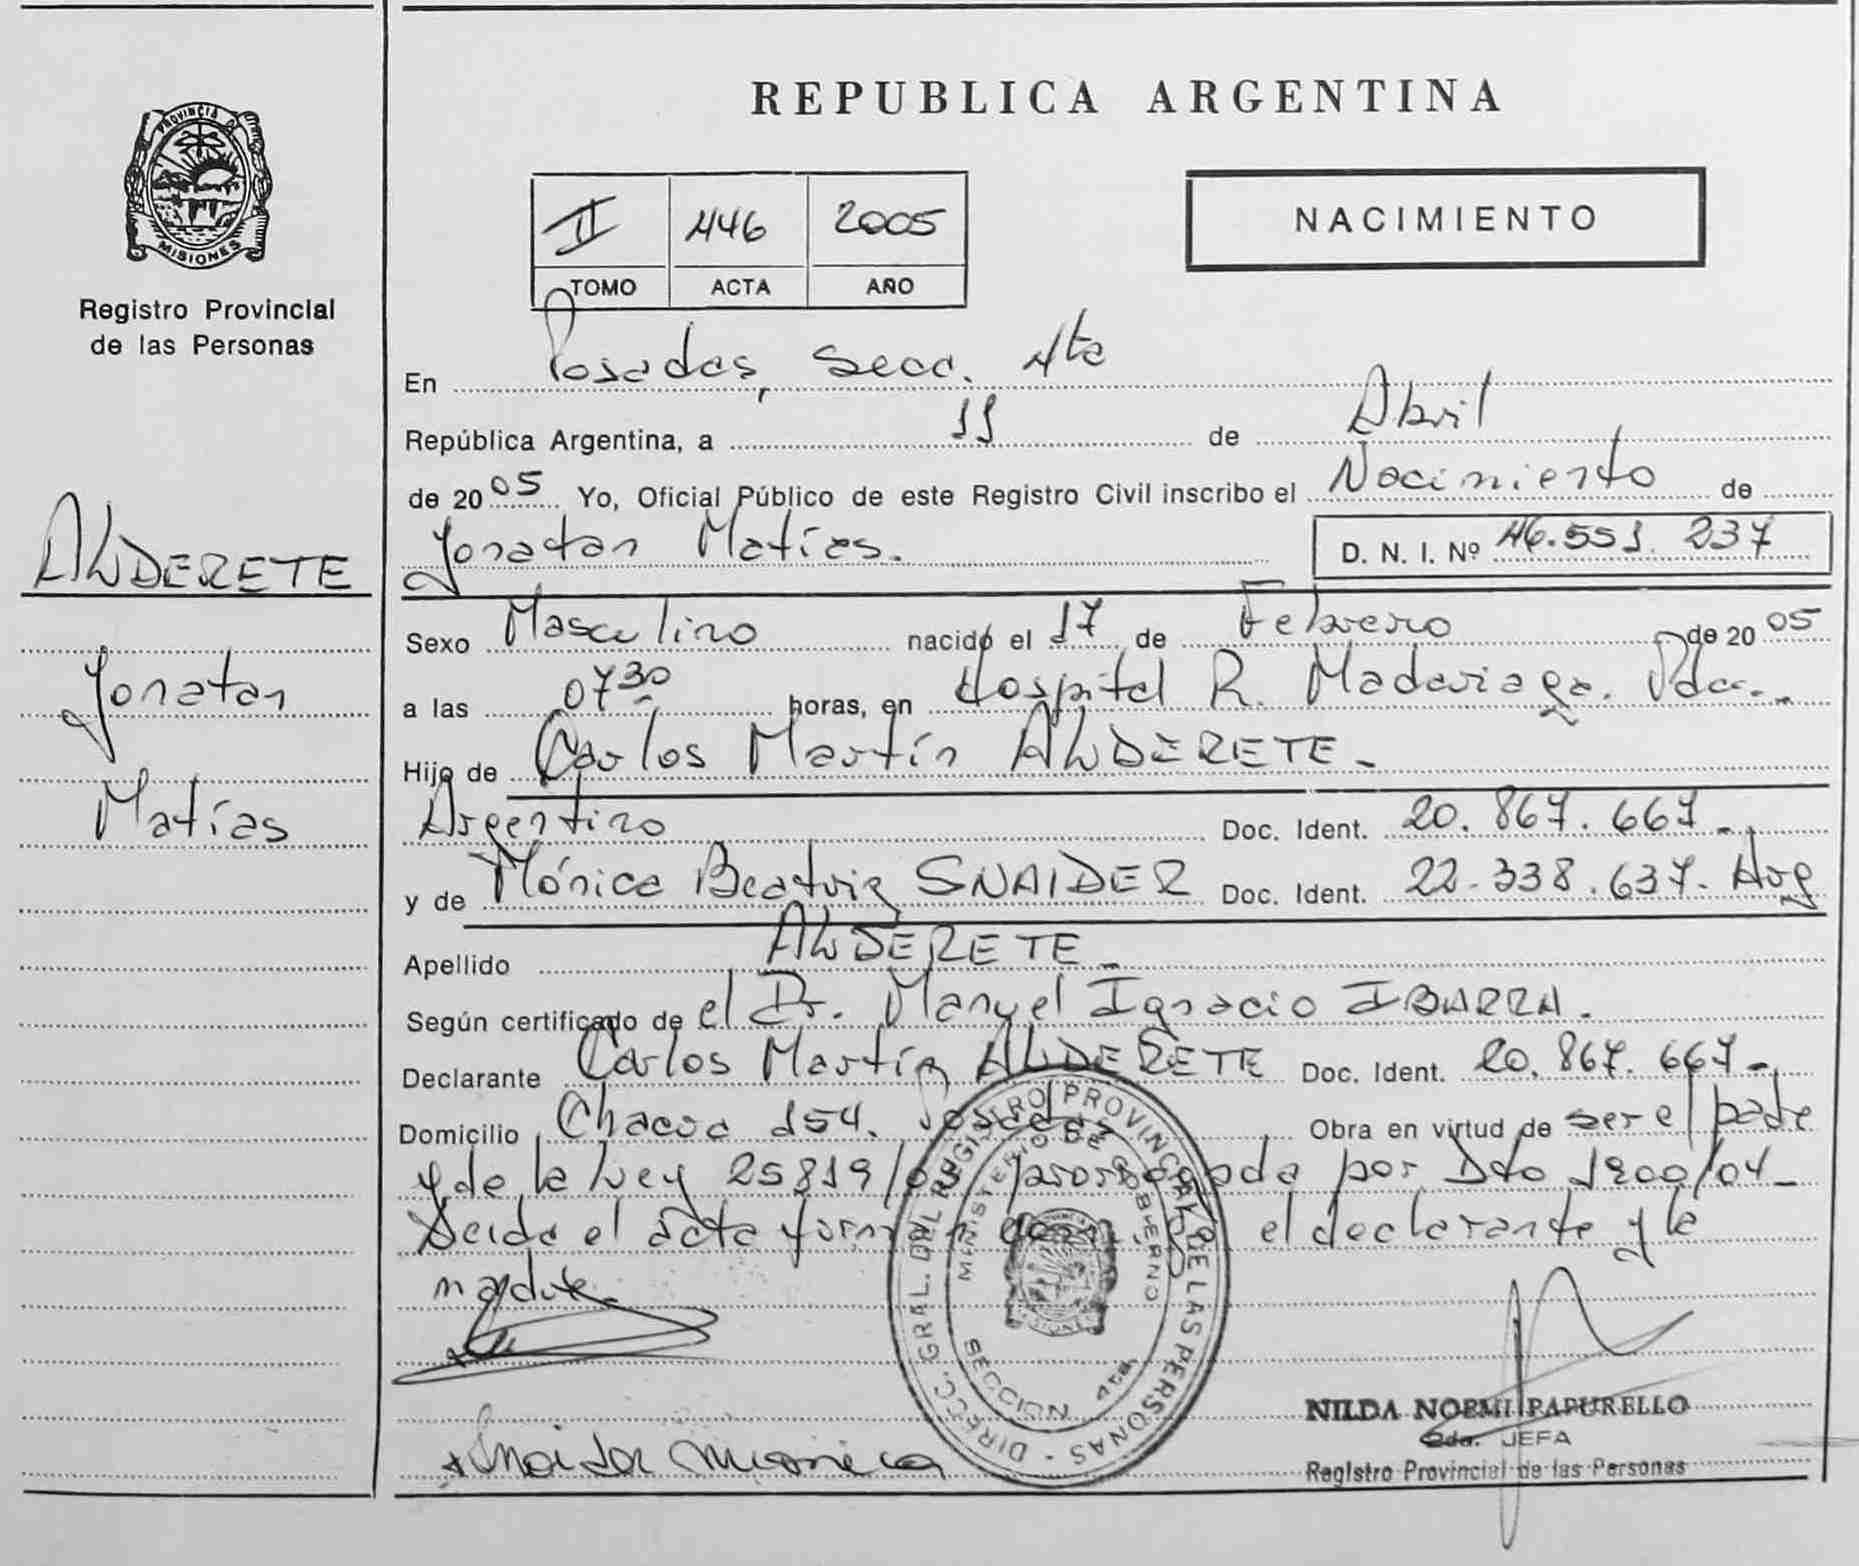 PROVINCIA DE
MISIONES
Registro Provincial
de las Personas
ALDERETE
Jonatan
Matías
REPUBLICA ARGENTINA
II 446 2005
TOMO ACTA AÑO
NACIMIENTO
En Posadas, Secc. 4ta
República Argentina, a 11 de Abril
de 2005 Yo, Oficial Público de este Registro Civil inscribo el Nacimiento de
Jonatan Matías. D. N. I. Nº 46.551.237
Sexo Masculino nacido el 17 de Febrero de 2005
a las 07 30 horas, en Hospital R. Madariaga. Pdas.
Hijo de Carlos Martín ALDERETE.-
Argentino Doc. Ident. 20.867.667.-
y de Mónica Beatriz SNAIDER Doc. Ident. 22.338.637.- Arg
Apellido ALDERETE.-
Según certificado de el Dr. Manuel Ignacio IBARRA.
Declarante Carlos Martín ALDERETE Doc. Ident. 20.867.667.-
Domicilio Chacra 154. Posadas Obra en virtud de ser el padre
y de la Ley 25819/03 prorrogada por Dto 1900/04-
Leida el acta firman el declarante y la
madre.
DIRECC. GRAL. DEL REGISTRO PROVINCIAL DE LAS PERSONAS
MINISTERIO DE GOBIERNO
SECCION 4ta
Snaider Monica
NILDA NOEMI PAPURELLO
2da. JEFA
Registro Provincial de las Personas